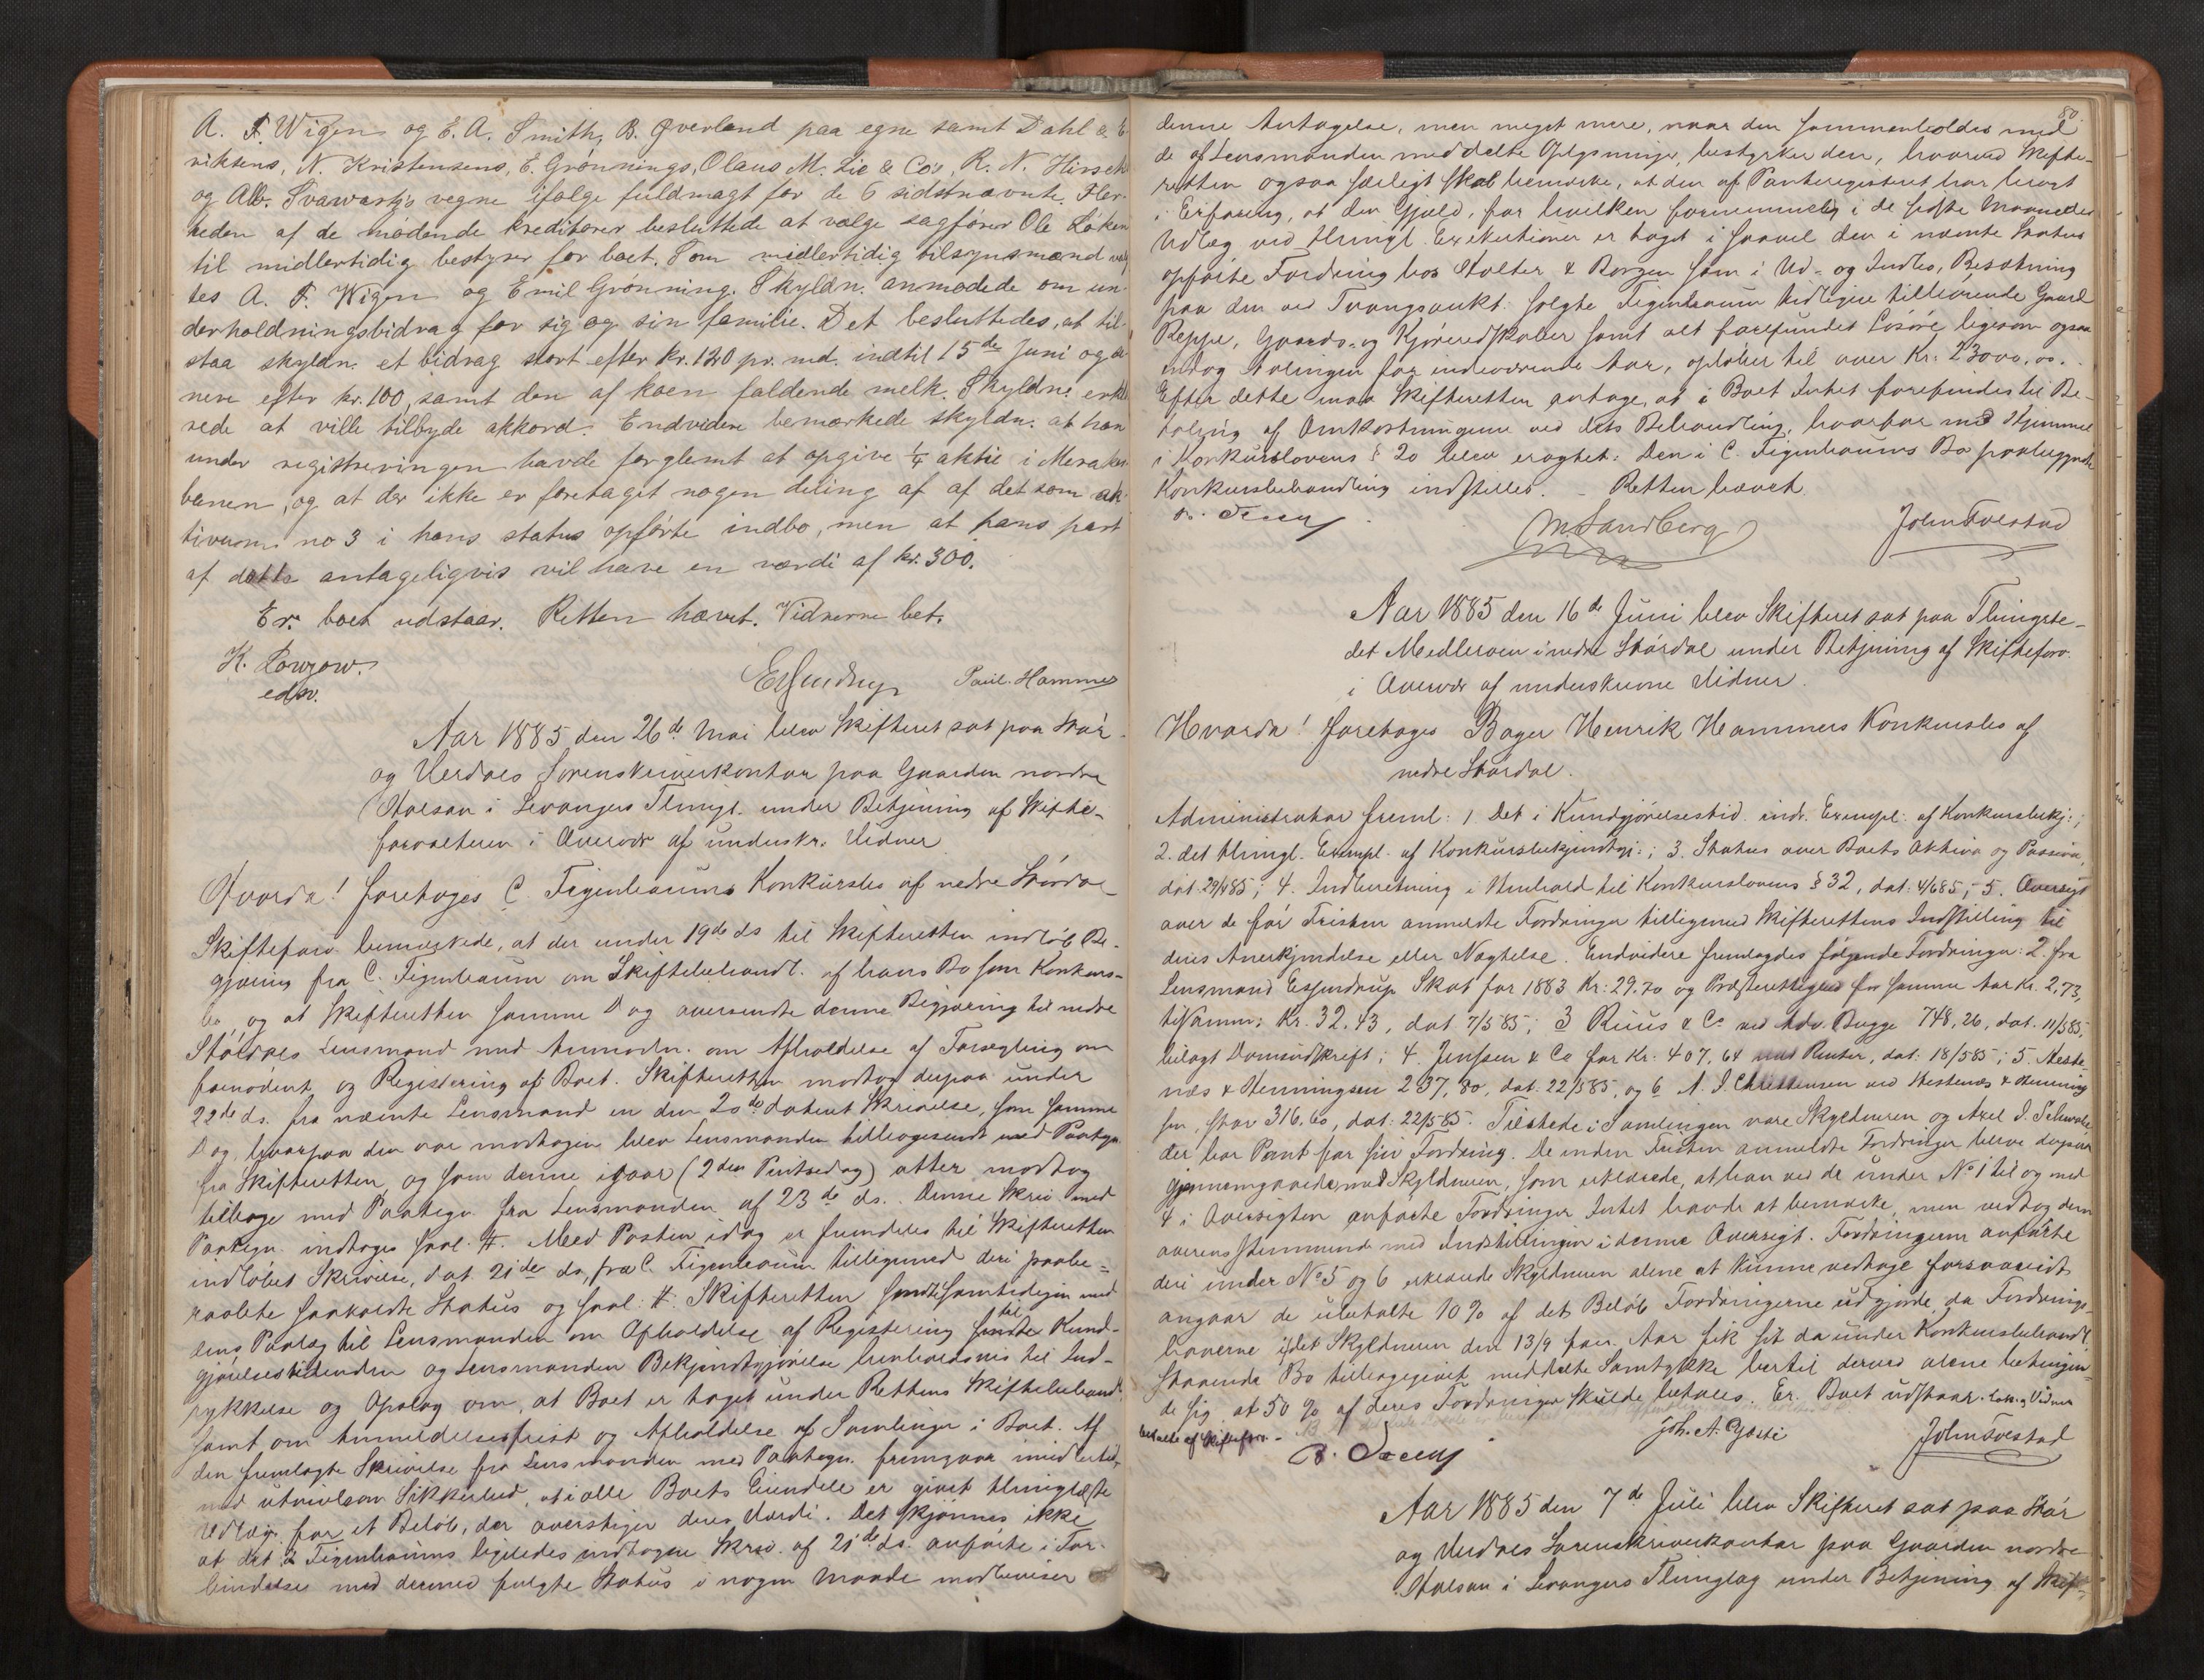 A. F. Wigen og E. A. Smith, B. Øverland paa egne samt Dahl & E
viksens, N. Kristensens, E. Grønnings, Olaus M. Lie & Co's, R. N. Hirsch
og Alb. Svawartz's vegne ifølge fuldmagt for de 6 sidstnævnte. Fler-
heden af de mødende kreditorer besluttede at vælge sagfører Ole Løken
til midlertidig bestyrer for boet. Som midlertidig tilsynsmænd valg
tes A. F. Wigen og Emil Grønning. Skyldn. anmodede om un-
derholdningsbidrag for sig og sin familie. Det besluttedes, at til-
staa skyldn. et bidrag stort efter kr. 120 pr. md. indtil 15de Juni og se
nere efter kr. 100, samt den af koen faldende melk. Skyldn. erklæ
rede at ville tilbyde akkord. Endvidere bemærkede skyldn. at han
under registreringen havde forglemt at opgive ¼ aktie i Meraker
banen, og at der ikke er foretaget nogen deling af af det som ak-
tivum no 3 i hans status opførte indbo, men at hans part
af dette antageligvis vil have en værdi af kr. 300.
Er. boet udstaar. Retten hævet. Vidnerne bet.
K. Lowzow.
edsv.
Paul Hammer
Aar 1885 den 26de Mai blev Skifteret sat paa Stør-
og Værdals Sorenskriverkontor paa Gaarden nordre
Stalsan i Levangers Thingl. under Betjening af Skifte-
forvalteren i Overvær af underskr. Vidner
Hvorda! foretoges C. Figenbaums Konkursbo af nedre Størdal
Skifteforv. bemærkede, at der under 19de ds til Skifteretten indløb Be-
gjæring fra C. Figenbaum om Skiftebehandl. af hans Bo som Konkurs-
bo, og at Skifteretten samme Dag oversendte denne Begjæring til nedre
Størdals Lensmand med Anmodn. om Afholdelse af Forsegling om
fornødent og Registering af Boet. Skifteretten modtog derpaa under
22de ds. fra nævnte Lensmand en den 20de dateret Skrivelse, som samme
Dag, hvorpaa den var modtagen blev Lensmanden tilbagesendt med Paategn.
fra Skifteretten, og som denne igaar (2den Pintsedag) atter modtog
tilbage med Paategn. fra Lensmanden af 23de ds. Denne Skriv. med
Paategn. indtages saal. #. Med Posten idag er fremdeles til Skifteretten
indløbet Skrivelse, dat. 21de ds, fra C. Figenbaum tilligemed deri paabe-
raabte saakaldte Status og saal. #. Skifteretten samtidigen med
sens Paalæg til Lensmanden om Afholdelse af Registering sendte til Kund-
gjørelsestidenden og Lensmanden Bekjendtgjørelse henholdsvis til Ind-
rykkelse og Opslag om, at Boet er taget under Rettens Skiftebehandl.
samt om Anmeldelsesfrist og Afholdelse af Samlinger i Boet. Af
den fremlagte Skrivelse fra Lensmanden med Paategn. fremgaar imidlertid
med utvivlsom Sikkerhed, at i alle Boets Eiendele er givet thinglæste
Udlæg for et Beløb, der overstiger deres Værdi. Det skjønnes ikke
at det i Figenbaums ligeledes indtagne Skriv. af 21de ds. anførte i For-
bindelse med dermed fulgte Status i nogen Maade modbeviser
80.
denne Antagelse, men meget mere, naar den sammenholdes med
de af Lensmanden meddelte Oplysninger, bestyrker den, hvorved Skifte-
retten ogsaa særligt skal bemærke, at den af Panteregisteret har bragt
i Erfaring, at den Gjæld, for hvilken fornemmelig i de sidste Maaneder
Udlæg ved thingl. Exekutioner er taget i saavel den i nævnte Status
opførte Fordring hos Stolter & Borgen som i Ud- og Indbo, Besætning
paa den ved Tvangsaukt. solgte Figenbaum tidligere tilhørende Gaard
Reppe, Gaards- og Kjøreredskaber samt alt forefundet Løsøre, ligesom ogsaa
endog Avlingen for indeværende Aar, opløber til over Kr: 23000,00.
Efter dette maa Skifteretten antage, at i Boet Intet forefindes til Be-
taling af Omkostningerne ved dets Behandling, hvorfor med Hjemmel
i Konkurslovens § 20 blev eragtet: Den i C. Figenbaums Bo paabegyndte
Konkursbehandling indstilles. – Retten hævet
M Sandberg John Tvestad
Aar 1885 den 16de Juni blev Skifteret sat paa Thingste-
det Medleraaen i nedre Størdal under Betjening af Skifteforv.
i Overvær af underskrevne Vidner.
Hvorda! foretoges Bager Henrik Hammers Konkursbo af
nedre Størdal.
Administrator freml: 1 Det i Kundgjørelsestid. indr. Exempl: af Konkursbekj:;
2. det thingl. Exempl. af Konkursbekjendtgj.; 3. Status over Boets Aktiva og Passiva,
dat. 29/4 85; 4. Indberetning i Henhold til Konkurslovens § 32, dat: 4/6 85; 5. Oversigt
over de før Fristen anmeldte Fordringer tilligemed Skifterettens Indstilling til
deres Anerkjendelse eller Nægtelse. Endvidere fremlagdes følgende Fordringer: 2 fra
Lensmand Esjendrup Skat for 1883 Kr: 29.70 og Præsterettighed for samme Aar Kr. 2,73,
tilsamm: Kr. 32.43, dat. 7/5 85; 3 Ruus & Co ved Adv. Bugge 748,26, dat. 11/5 85,
bilagt Domsudskrift; 4 Jenssen & Co for Kr: 407,64 med Renter, dat: 18/5 85; 5. Neste-
næs & Henningsen 237,80, dat. 22/5 85, og 6 A. I. Christensen ved Hestenæs & Henning
sen, stor 316.60, dat: 22/5 85. Tilstede i Samlingen vare Skyldneren og Axel I. Schwabe,
der har Pant for sin Fordring. De inden Fristen anmeldte Fordringer bleve derpaa
gjennemgaaede med Skyldneren, som erklærede, at han ved de under No 1 til og med
4 i Oversigten anførte Fordringer Intet havde at bemærke, men vedtog dem
overensstemmende med Indstillingen i denne Oversigt. Fordringerne anførte
deri under No 5 og 6 erklærede Skyldneren alene at kunne vedtage forsaavidt
angaar de ubetalte 10 % af det Beløb Fordringerne udgjorde, da Fordrings-
haverne idet Skyldneren den 13/9 forr. Aar fik sit da under Konkursbehandl.
staaende Bo tilbagegivet meddelte Samtykke hertil derved alene betingen-
de sig at 50 % af deres Fordringer skulde betales. Er. Boet udstaar.
betalte af Skifteforv.
Joh. A. Gjøsti John Tvestad
Aar 1885 den 7de Juli blev Skifteret sat paa Stør
og Værdals Sorenskriverkontor paa Gaarden nordre
Stalsan i Levangers Thinglag under Betjening af Skif-